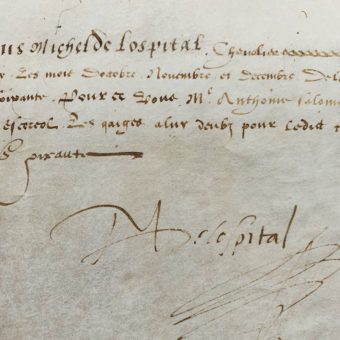 us Michel de Lospital, Chevalier
Les mois doctobre, Novembre, et decembre
soixante. Pour ce vous, Mc Anthoine
Les gaiges a luy deubz pour ledict
soixante
M delospital